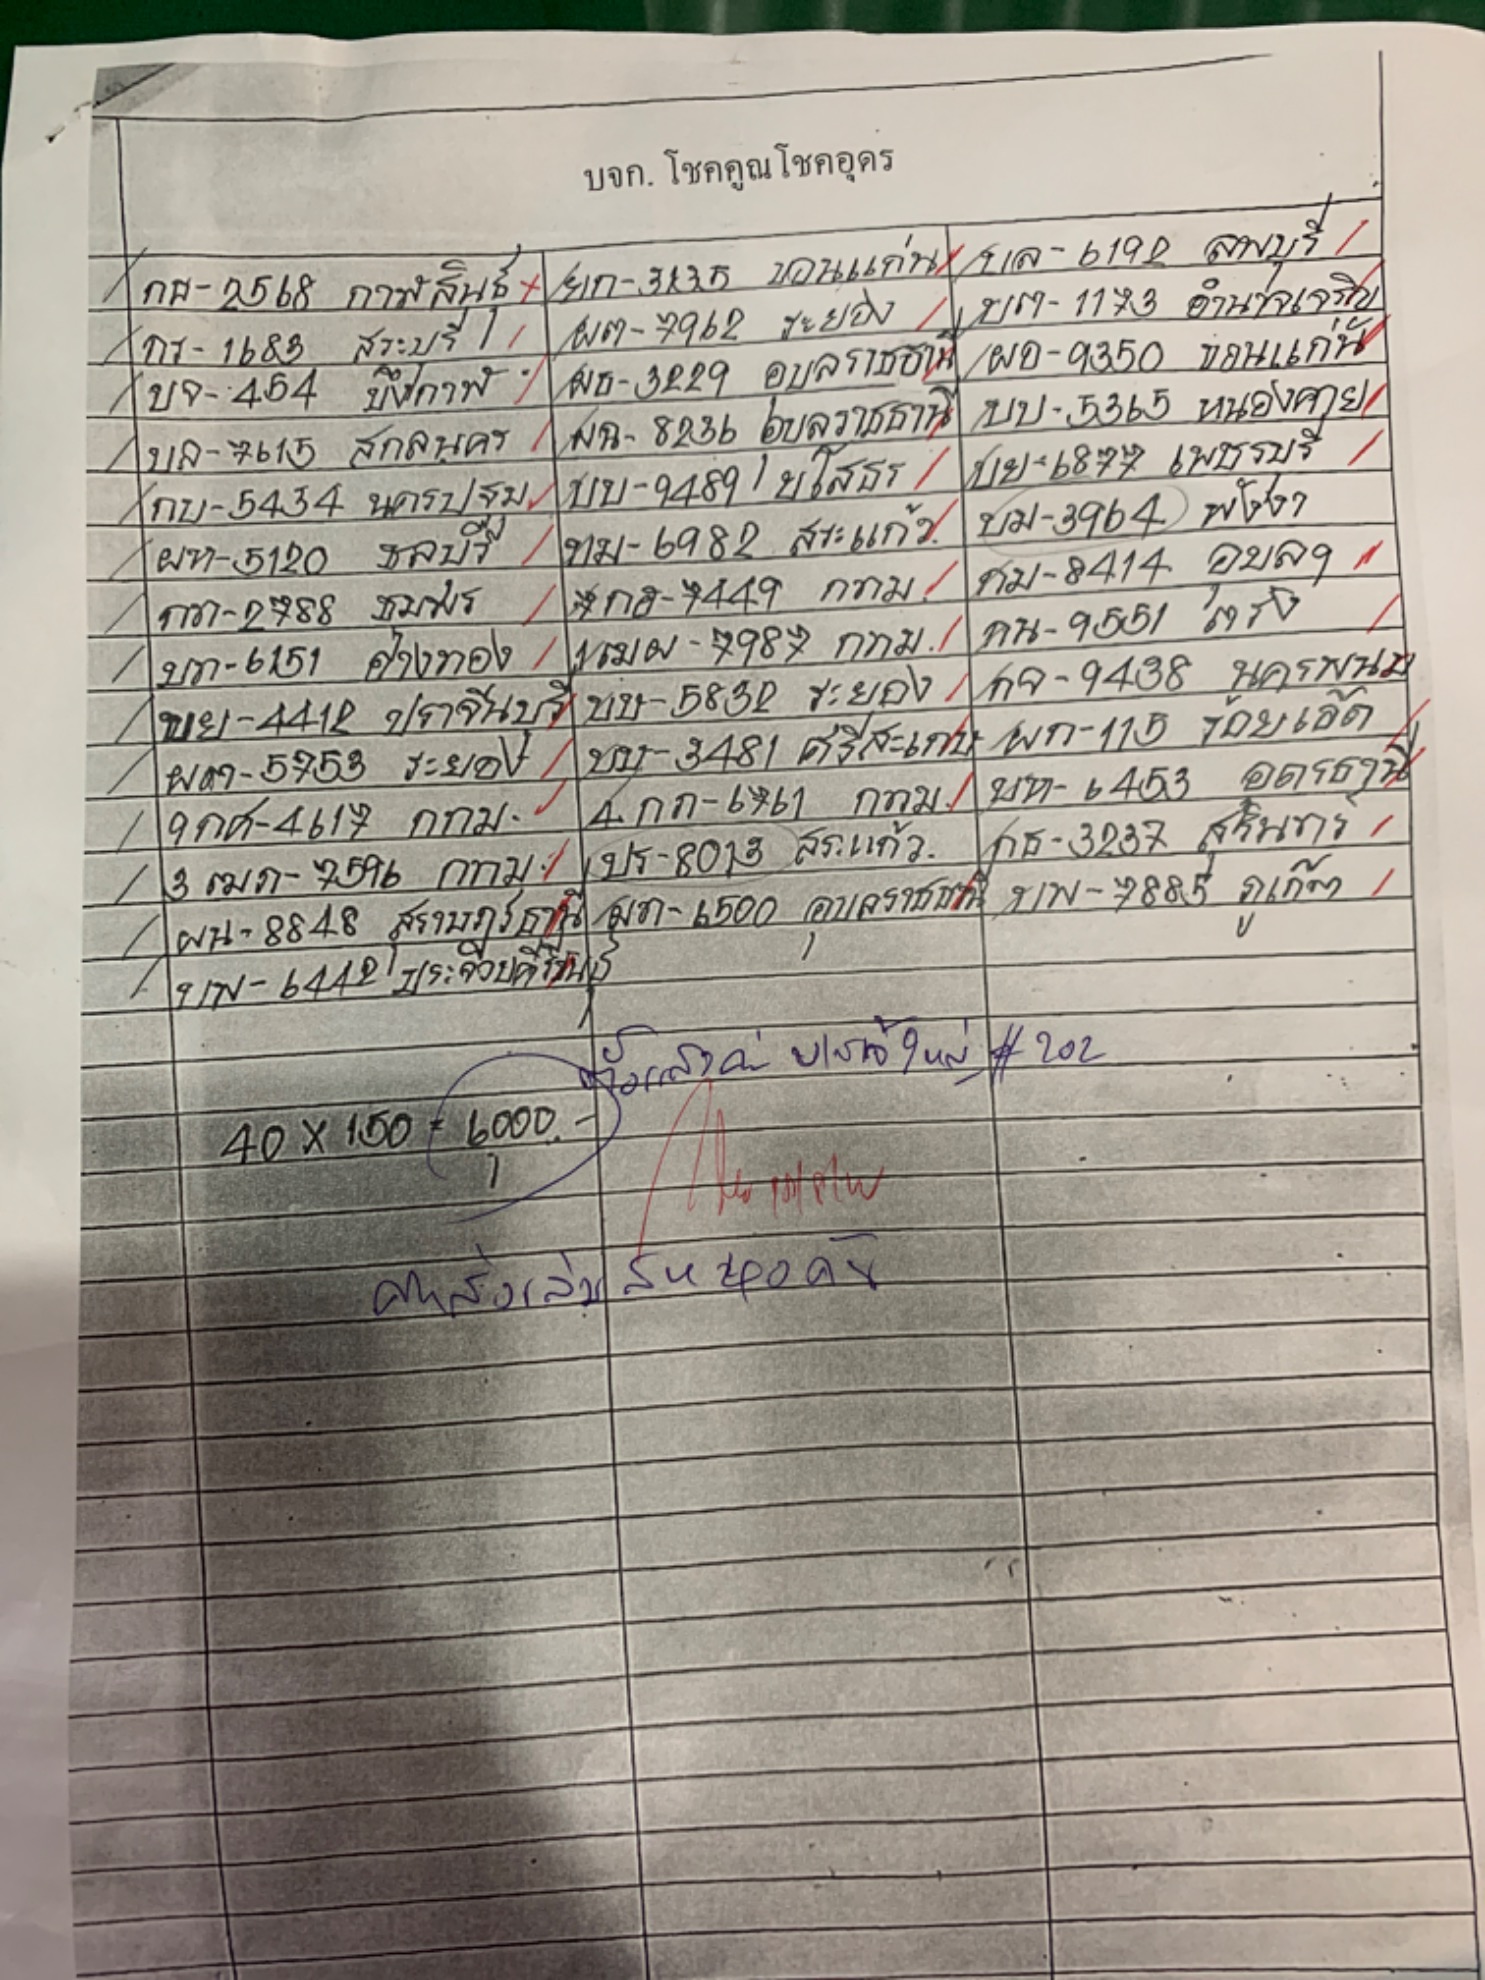 บจก. โชคคูณโชคอุดร
กส-2568 กาฬสินธุ์ ยก-3235 ขอนแก่น บล-6192 ลพบุรี
กร-1683 สระบุรี ผต-7962 ระยอง บต-1173 อำนาจเจริญ
บจ-454 บึงกาฬ ผธ-3229 อุบลราชธานี ผอ-9350 ขอนแก่น
บล-7615 สกลนคร ผฉ-8236 อุบลราชธานี บบ-5365 หนองคาย
กบ-5434 นครปฐม บบ-9489 ยโสธร บย-6877 เพชรบุรี
ผท-5120 ชลบุรี ทม-6982 สระแก้ว. บม-3964 พังงา
กก-2788 ชุมพร 7กธ-7449 กทม. กม-8414 อุบลฯ
บก-6151 อ่างทอง 1ฒผ-7987 กทม. กน-9551 ตรัง
ขย-4412 ปราจีนบุรี ขบ-5832 ระยอง กจ-9438 นครพนม
ผต-5753 ระยอง บบ-3481 ศรีสะเกษ ผก-115 ร้อยเอ็ด
9กศ-4617 กทม. 4กก-6761 กทม. บท-6453 อุดรธานี
3ฒก-7596 กทม. ปร-8013 สระแก้ว. กธ-3237 สุรินทร์
ผน-8848 สุราษฎร์ธานี มก-6500 อุบลราชธานี บพ-7885 ภูเก็ต
บพ-6442 ประจวบคีรีขันธ์
#202
40 X 150 = 6000.-